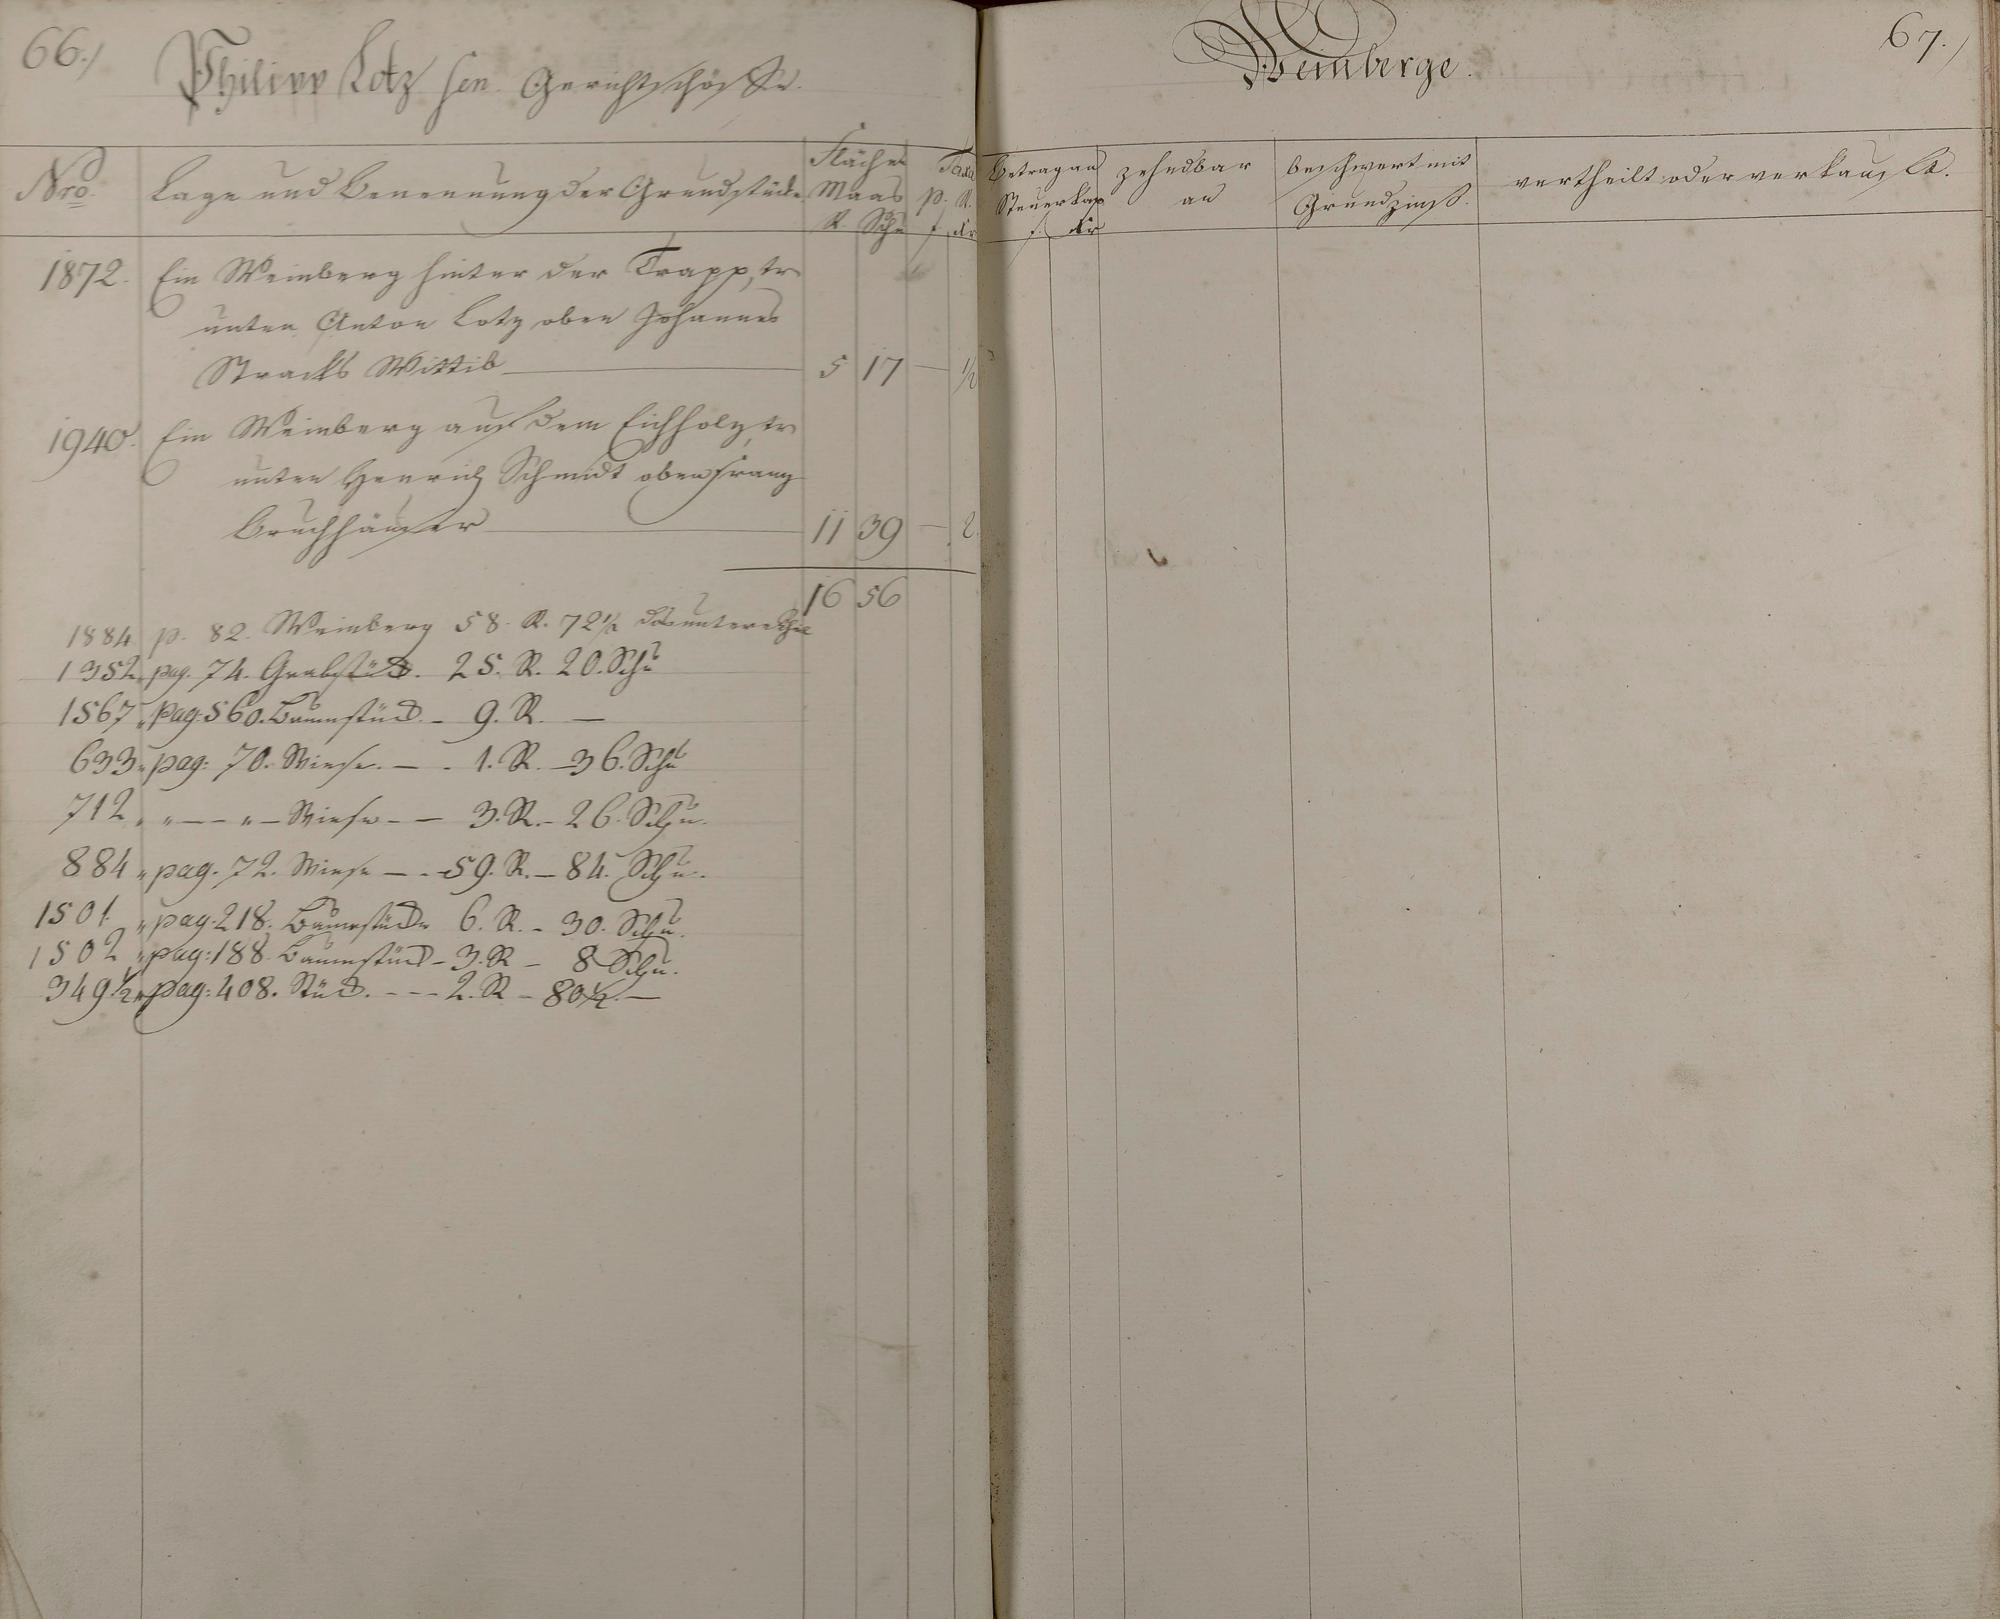 66.)
Philipp Lotz sen. Gerichtsschöffe.
Nro. Lage und Benennung der Grundstücke Fläche Maas R. Schu Taxa p. R. f. Kr
1872. Ein Weinberg hinter der Trapp, tr
unten Anton Lotz oben Johannes
Stracks Wittib 5 17 — 1/2
1940. Ein Weinberg auf dem Eichholz, tr
unten Henrich Schmidt oben Franz
Bruchhäuser 11 39 — 2.
16 56
1884 p. 82. Weinberg 58. R. 72 1/2 der untere
1352 pag. 74. Grabstück. 25. R. 20. Schu
1567 „ pag: 560. Baumstück. – 9. R. —
633 „ pag: 70. Wiese. — . 1. R. – 36. Schu
712 „ „ — „ – Wiese – — 3. R. – 26. Schu.
884 „ pag. 72. Wiese — . 59. R. – 84. Schu.
1501. „ pag. 218. Baumstück 6. R. – 30. Schu.
1502 „ pag: 188. Baumstück – 3. R – 8 Schu.
349 1/2 „ pag: 408. Stück. – – – 2. R – 80 1/2. —
67.)
Weinberge.
Betrag an Steuerkap f. Kr
zehndbar an
beschwert mit Grundzinß.
vertheilt oder verkauft.